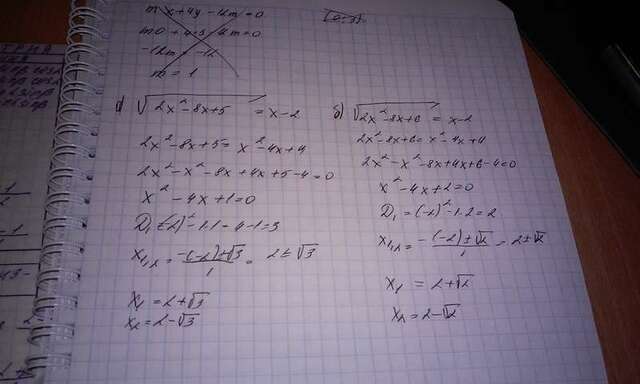 mx+4y-12m=0
(0;3)
m0+4·3-12m=0
-12m=-12
m=1
а) √(2x²-8x+5) = x-2
2x²-8x+5= x²-4x+4
2x²-x²-8x+4x+5-4=0
x²-4x+1=0
D₁=(-2)²-1·1=4-1=3
x₁,₂ = (-(-2)±√3)/1 = 2±√3
x₁ = 2+√3
x₂ = 2-√3
б) √(2x²-8x+6) = x-2
2x²-8x+6= x²-4x+4
2x²-x²-8x+4x+6-4=0
x²-4x+2=0
D₁=(-2)²-1·2=2
x₁,₂ = (-(-2)±√2)/1 = 2±√2
x₁ = 2+√2
x₂ = 2-√2